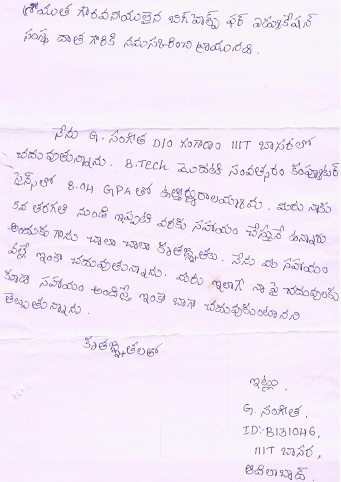 శ్రీయుత గౌరవనీయులైన బిగ్ హెల్ప్ ఫర్ ఎడ్యుకేషన్
సంస్థ దాత గారికి నమస్కరించి వ్రాయునది.
నేను G. సంగీత D/O గంగారాం IIIT బాసరలో
చదువుతున్నాను. B.Tech మొదటి సంవత్సరం కంప్యూటర్
సైన్స్ లో 8.04 GPA తో ఉత్తీర్ణురాలయ్యాను. మీరు నాకు
5వ తరగతి నుండి ఇప్పటి వరకు సహాయం చేస్తూనే ఉన్నారు
అందుకు గాను చాలా చాలా కృతజ్ఞతలు. నేను మీ సహాయం
వల్లే ఇంకా చదువుతున్నాను. మీరు ఇలాగే నా పై చదువులకు
కూడా సహాయం అందిస్తే ఇంకా బాగా చదువుకుంటానని
తెల్పుతున్నాను.
కృతజ్ఞతలతో
ఇట్లు,
G. సంగీత,
ID:- B131046,
IIIT బాసర,
ఆదిలాబాద్.